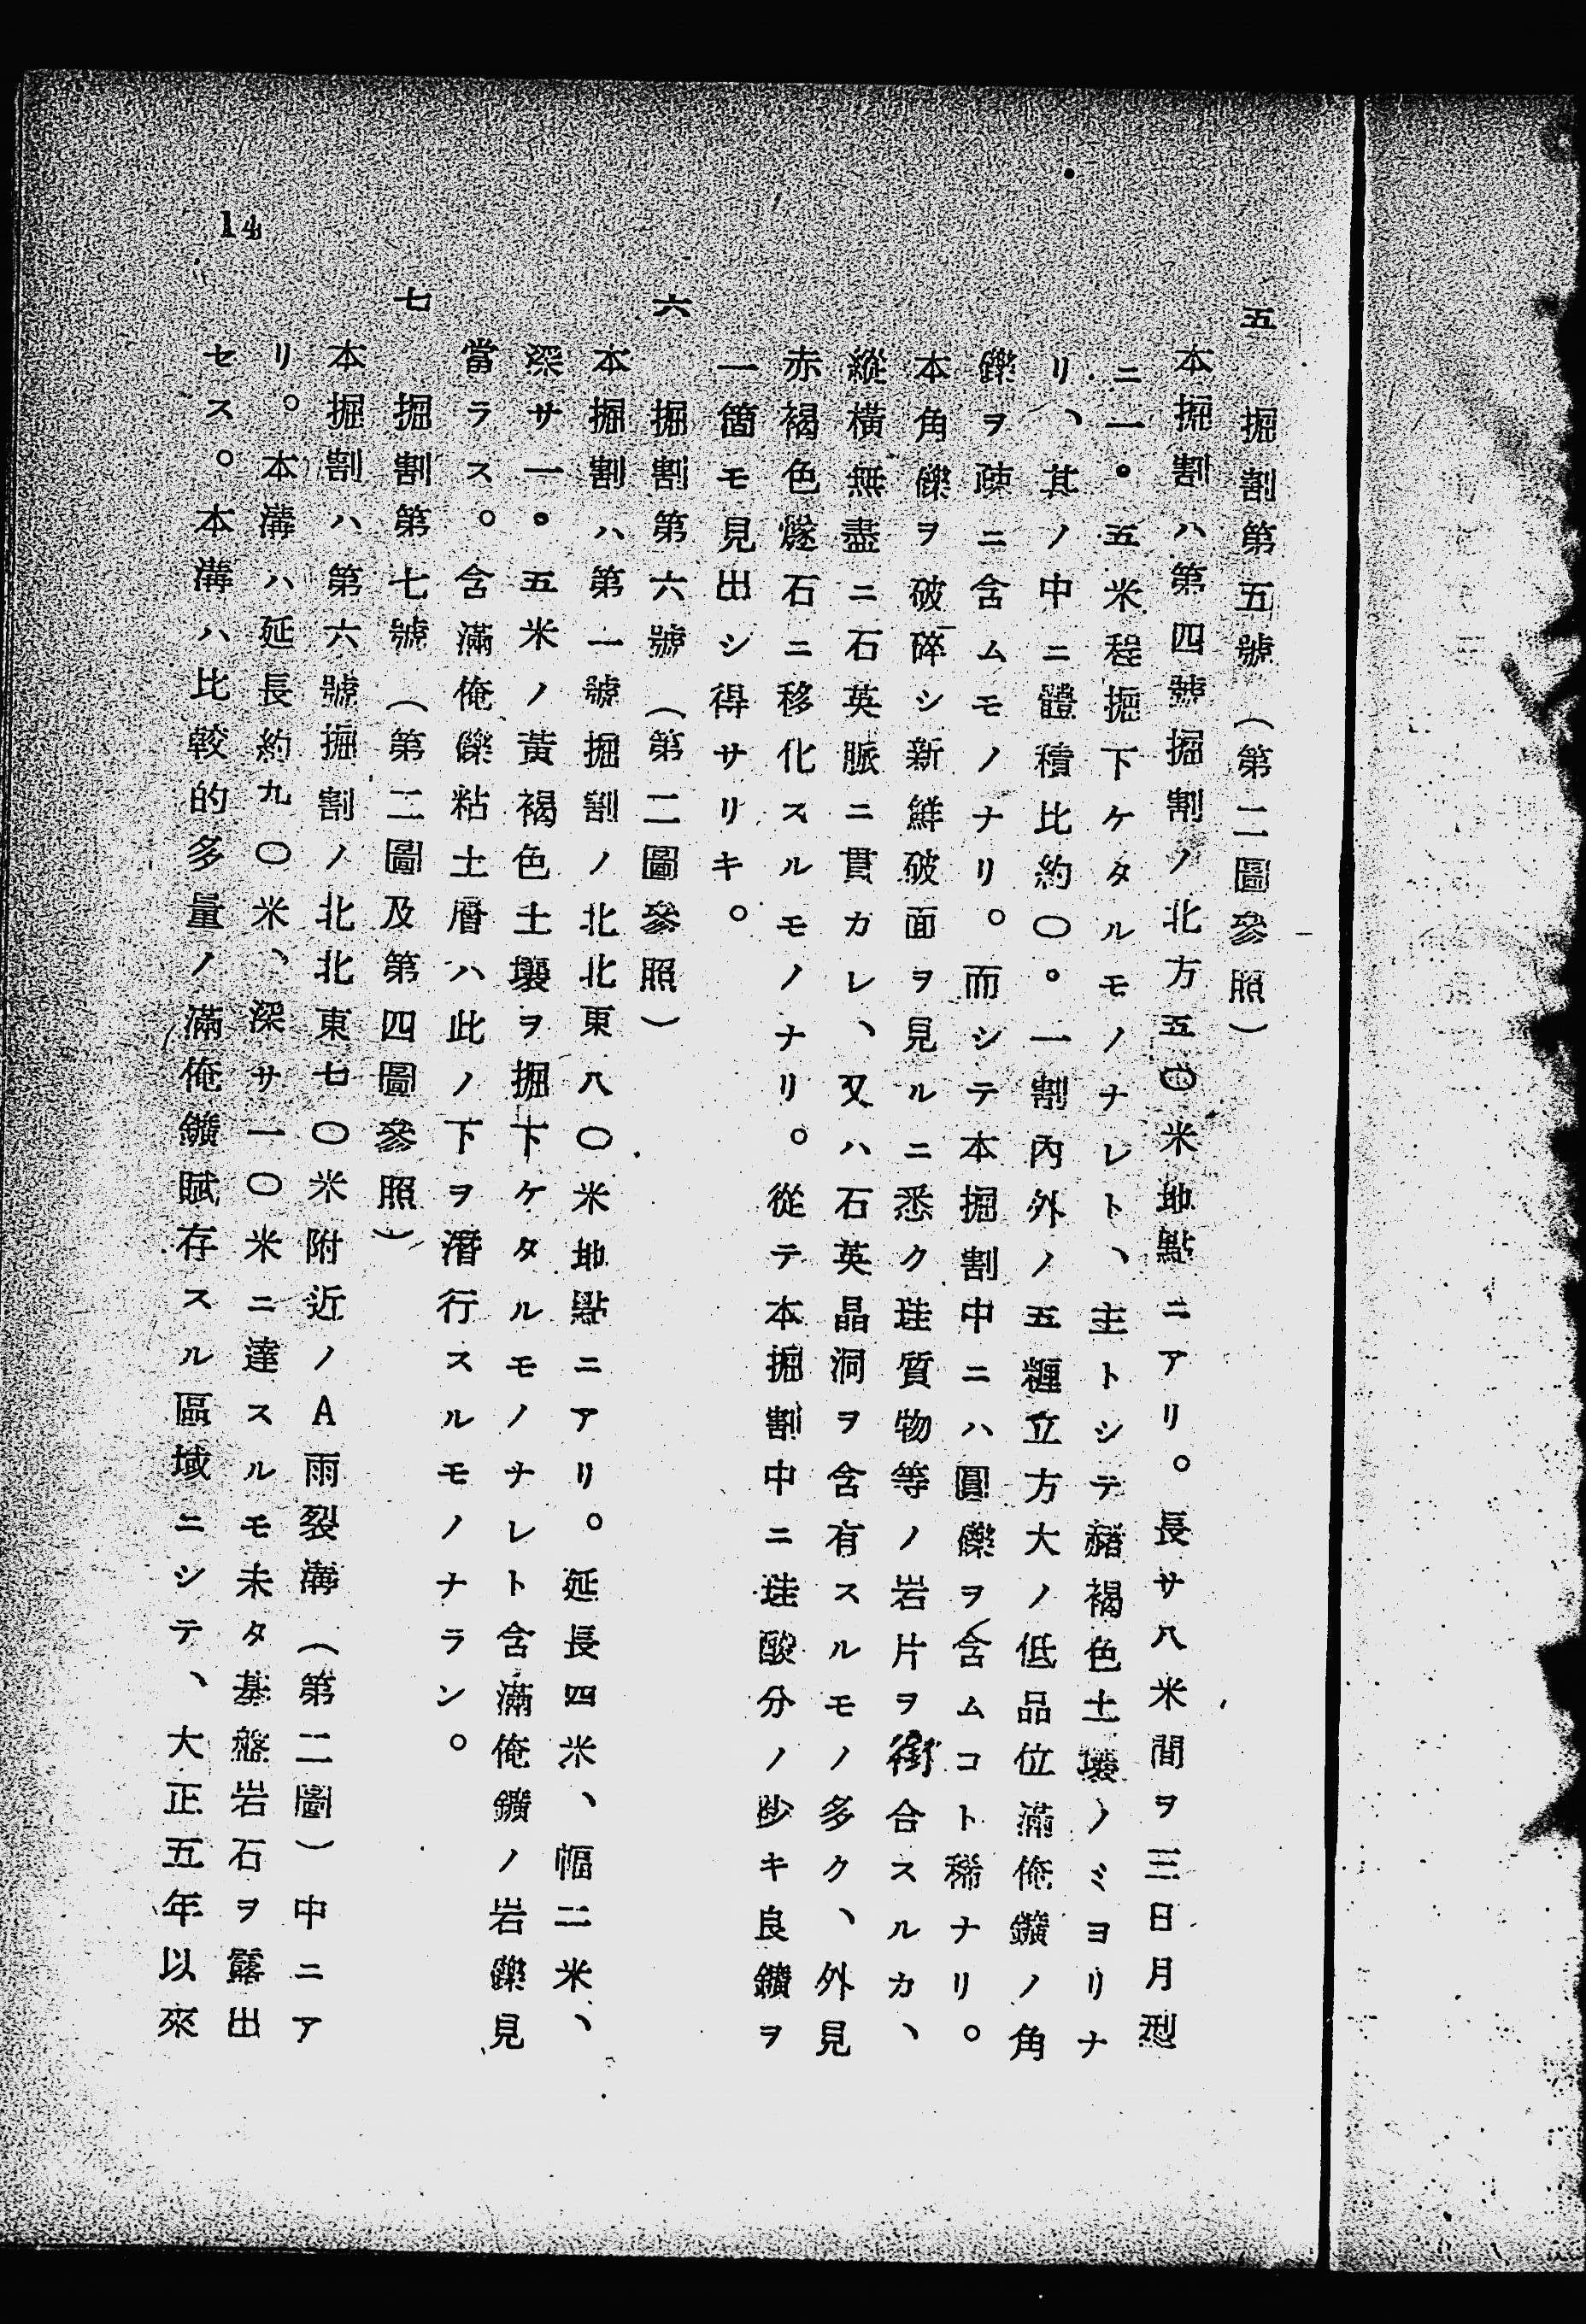 五　掘割第五號（第二圖參照）
本掘割ハ第四號掘割ノ北方五〇米地點ニアリ。長サ八米間ヲ三日月型
ニ一・五米程掘下ケタルモノナレト、主トシテ赭褐色土壤ノミヨリナ
リ、其ノ中ニ體積比約〇・一割內外ノ五糎立方大ノ低品位滿俺鑛ノ角
礫ヲ疎ニ含ムモノナリ。而シテ本掘割中ニハ圓礫ヲ含ムコト稀ナリ。
本角礫ヲ破碎シ新鮮破面ヲ見ルニ悉ク珪質物等ノ岩片ヲ合スルカ、
縱橫無盡ニ石英脈ニ貫カレ、又ハ石英晶洞ヲ含有スルモノ多ク、外見
赤褐色燧石ニ移化スルモノナリ。從テ本掘割中ニ珪酸分ノ尠キ良鑛ヲ
一箇モ見出シ得サリキ。
六　掘割第六號（第二圖參照）
本掘割ハ第一號掘割ノ北北東八〇米地點ニアリ。延長四米、幅二米、
深サ一・五米ノ黃褐色土壤ヲ掘下ケタルモノナレト含滿俺鑛ノ岩礫見
當ラス。含滿俺礫粘土層ハ此ノ下ヲ潛行スルモノナラン。
七　掘割第七號（第二圖及第四圖參照）
本掘割ハ第六號掘割ノ北北東七〇米附近ノA雨裂溝（第二圖）中ニア
リ。本溝ハ延長約九〇米、深サ一〇米ニ達スルモ未タ基盤岩石ヲ露出
セス。本溝ハ比較的多量ノ滿俺鑛賦存スル區域ニシテ、大正五年以來
14